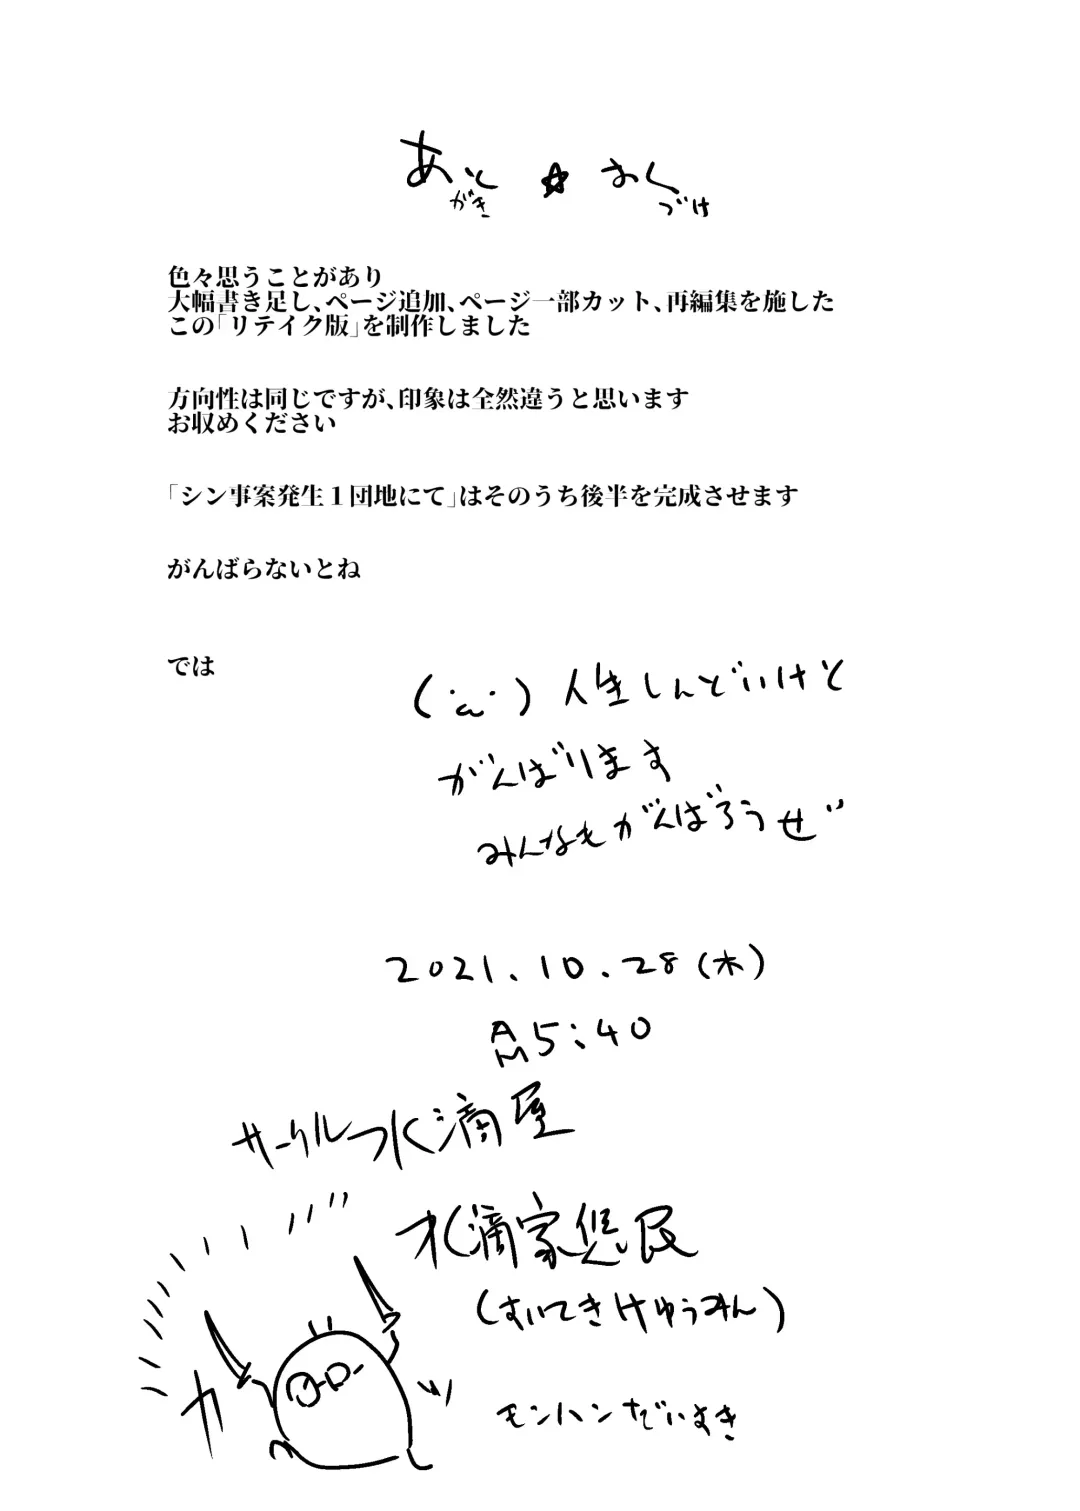 あとがき☆おくづけ
色々思うことがあり
大幅書き足し、ページ追加、ページ一部カット、再編集を施した
この「リテイク版」を制作しました
方向性は同じですが、印象は全然違うと思います
お収めください
「シン事案発生１団地にて」はそのうち後半を完成させます
がんばらないとね
では
人生しんどいけど
がんばります
みんなもがんばろうぜ
2021.10.28(木)
AM5:40
サークル水滴屋
水滴家悠民
(すいてきけゆうみん)
カッ
モンハンだいすき